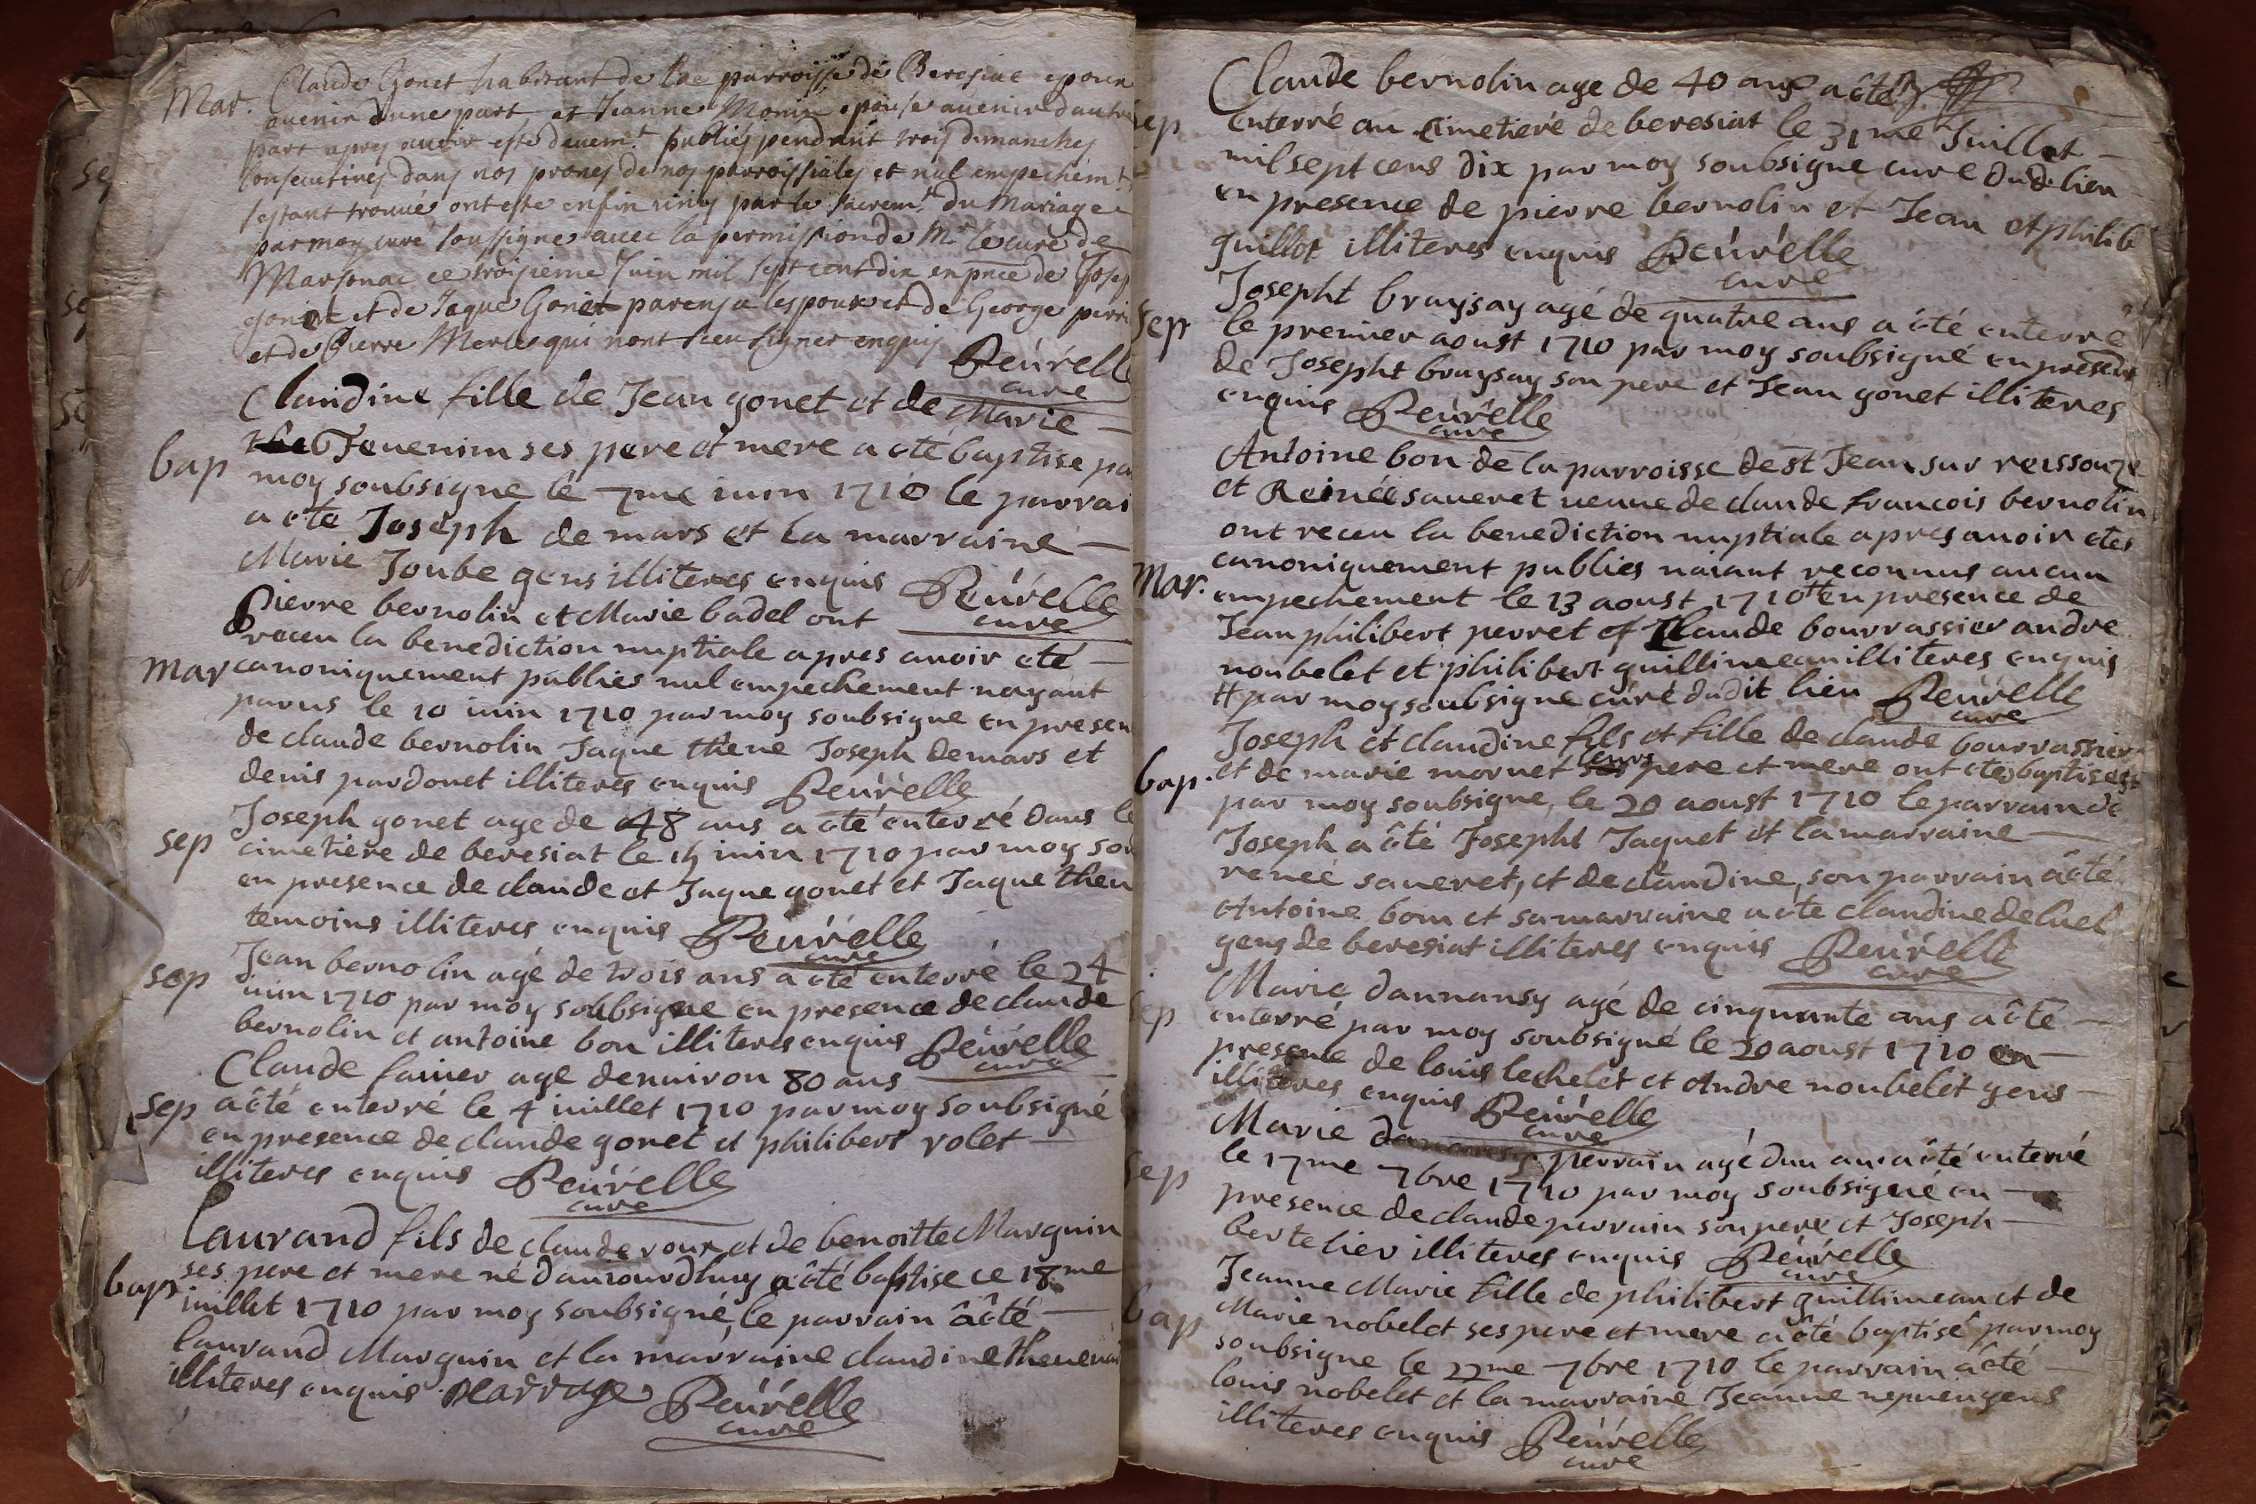 Mar.
Claude Gonet habitant de la parroisse de Beresiat epoux
avenir dune part, et Jeanne Monin epouse avenir dautre
part apres avoir esté deuem.t publiés pendant trois dimanches
consecutives dans nos prones de nos parroissiales et nul empechem.t
sestant trouvé ont esté enfin unis par le sacrem.t du Mariage
par moy curé soussigné avec la permission de M.r le curé de
Marsonac ce troisieme Juin mil sept cent dix en pnce de Josep
gonet et de Jaque Gonet parens a lespoux et de George perri
et de Pierre Merle qui nont sceu signer enquis
Peúrelle
cure
bap
Claudine fille de Jean gonet et de Marie —
Teuenin ses pere et mere a ote baptise pa
moy soubsigne le 7me iuin 1710 le parrai
a ote Joseph de mars et la marraine —
Marie Joube gens illiteres enquis Peúrelle
cure
Mar
Pierre bernolin et Marie badel ont
receu la benediction nuptiale apres avoir ete —
canoniquement publies nul empechement nayant
parus le 10 iuin 1710 par moy soubsigne en presen
de claude bernolin Jaque thene Joseph demars et
denis pardonet illiteres enquis Peúrelle
sep
Joseph gonet age de 48 ans a oté enterré dans le
cimetiere de beresiat le iuin 1710 par moy sou
en presence de claude et Jaque gonet et Jaque then
temoins illiteres enquis Peúrelle
cure
sep
Jean bernolin agé de trois ans a oté enterré le 24
iuin 1710 par moy soubsigne en presence de claude
bernolin et antoine bon illiteres enquis Peúrelle
cure
sep
Claude fainier age denuiron 80 ans
a oté enterré le 4 iuillet 1710 par moy soubsigné
en presence de claude gonet et philibert rolet —
illiteres enquis Peúrelle
cure
bap
Laurand fils de claude roux et de benoitte Marguin
ses pere et mere né dauiourdhuy a oté baptise ce 18me
iuillet 1710 par moy soubsigné, le parrain a oté —
laurand Marguin et la marraine claudine theueni
illiteres enquis Peúrelle
cure
sep
Claude bernolin age de 40 ans a oté
enterré au cimetiere de beresiat le 31me Juillet —
mil sept cens dix par moy soubsigne cure dud. lieu
en presence de pierre bernolin et Jean et philib
guillot illiteres enquis Peúrelle
cure
sep
Josepht braysay agé de quatre ans a oté enterre
le premier aoust 1710 par moy soubsigné en presence
de Josepht braysay son pere et Jean gonet illiteres
enquis Peúrelle
cure
Mar.
Antoine bon de la parroisse de st Jean sur reissouze
et Reinée saueret ueuue de claude francois bernolin
ont receu la benediction nuptiale apres auoir etes
canoniquement publies naiant reconnus aucun
empechement le 13 aoust 1710 # en presence de
Jean philibert perret et Claude bourrassier andre
noubelet et philibert guillimeau illiteres enquis
# par moy soubsigne curé dudit lieu Peúrelle
cure
bap.
Joseph et claudine fils et fille de claude bourrassier
et de marie mornet leurs pere et mere ont etes baptises
par moy soubsigne, le 20 aoust 1710 le parrain de
Joseph a oté Josepht Jaquet et la marraine —
renée saueret, et de claudine, son parrain a oté
Antoine bon et sa marraine a ote claudine deluel
gens de beresiat illiteres enquis Peúrelle
cure
sep
Marie dannansy agé de cinquante ans a oté —
enterré par moy soubsigné le 20 aoust 1710 en —
presence de louis lechelet et Andre noubelet gens —
illiteres enquis Peúrelle
cure
sep
Marie perrain agé dun an a oté enterré
le 17me 7bre 1710 par moy soubsigne en —
presence de claude perrain son pere et Joseph —
bertelier illiteres enquis Peúrelle
cure
bap
Jeanne Marie fille de philibert guillimeau et de
Marie nobelet ses pere et mere a oté baptisé par moy
soubsigne le 22me 7bre 1710 le parrain a oté —
louis nobelet et la marraine Jeanne nepueu gens
illiteres enquis Peúrelle
cure